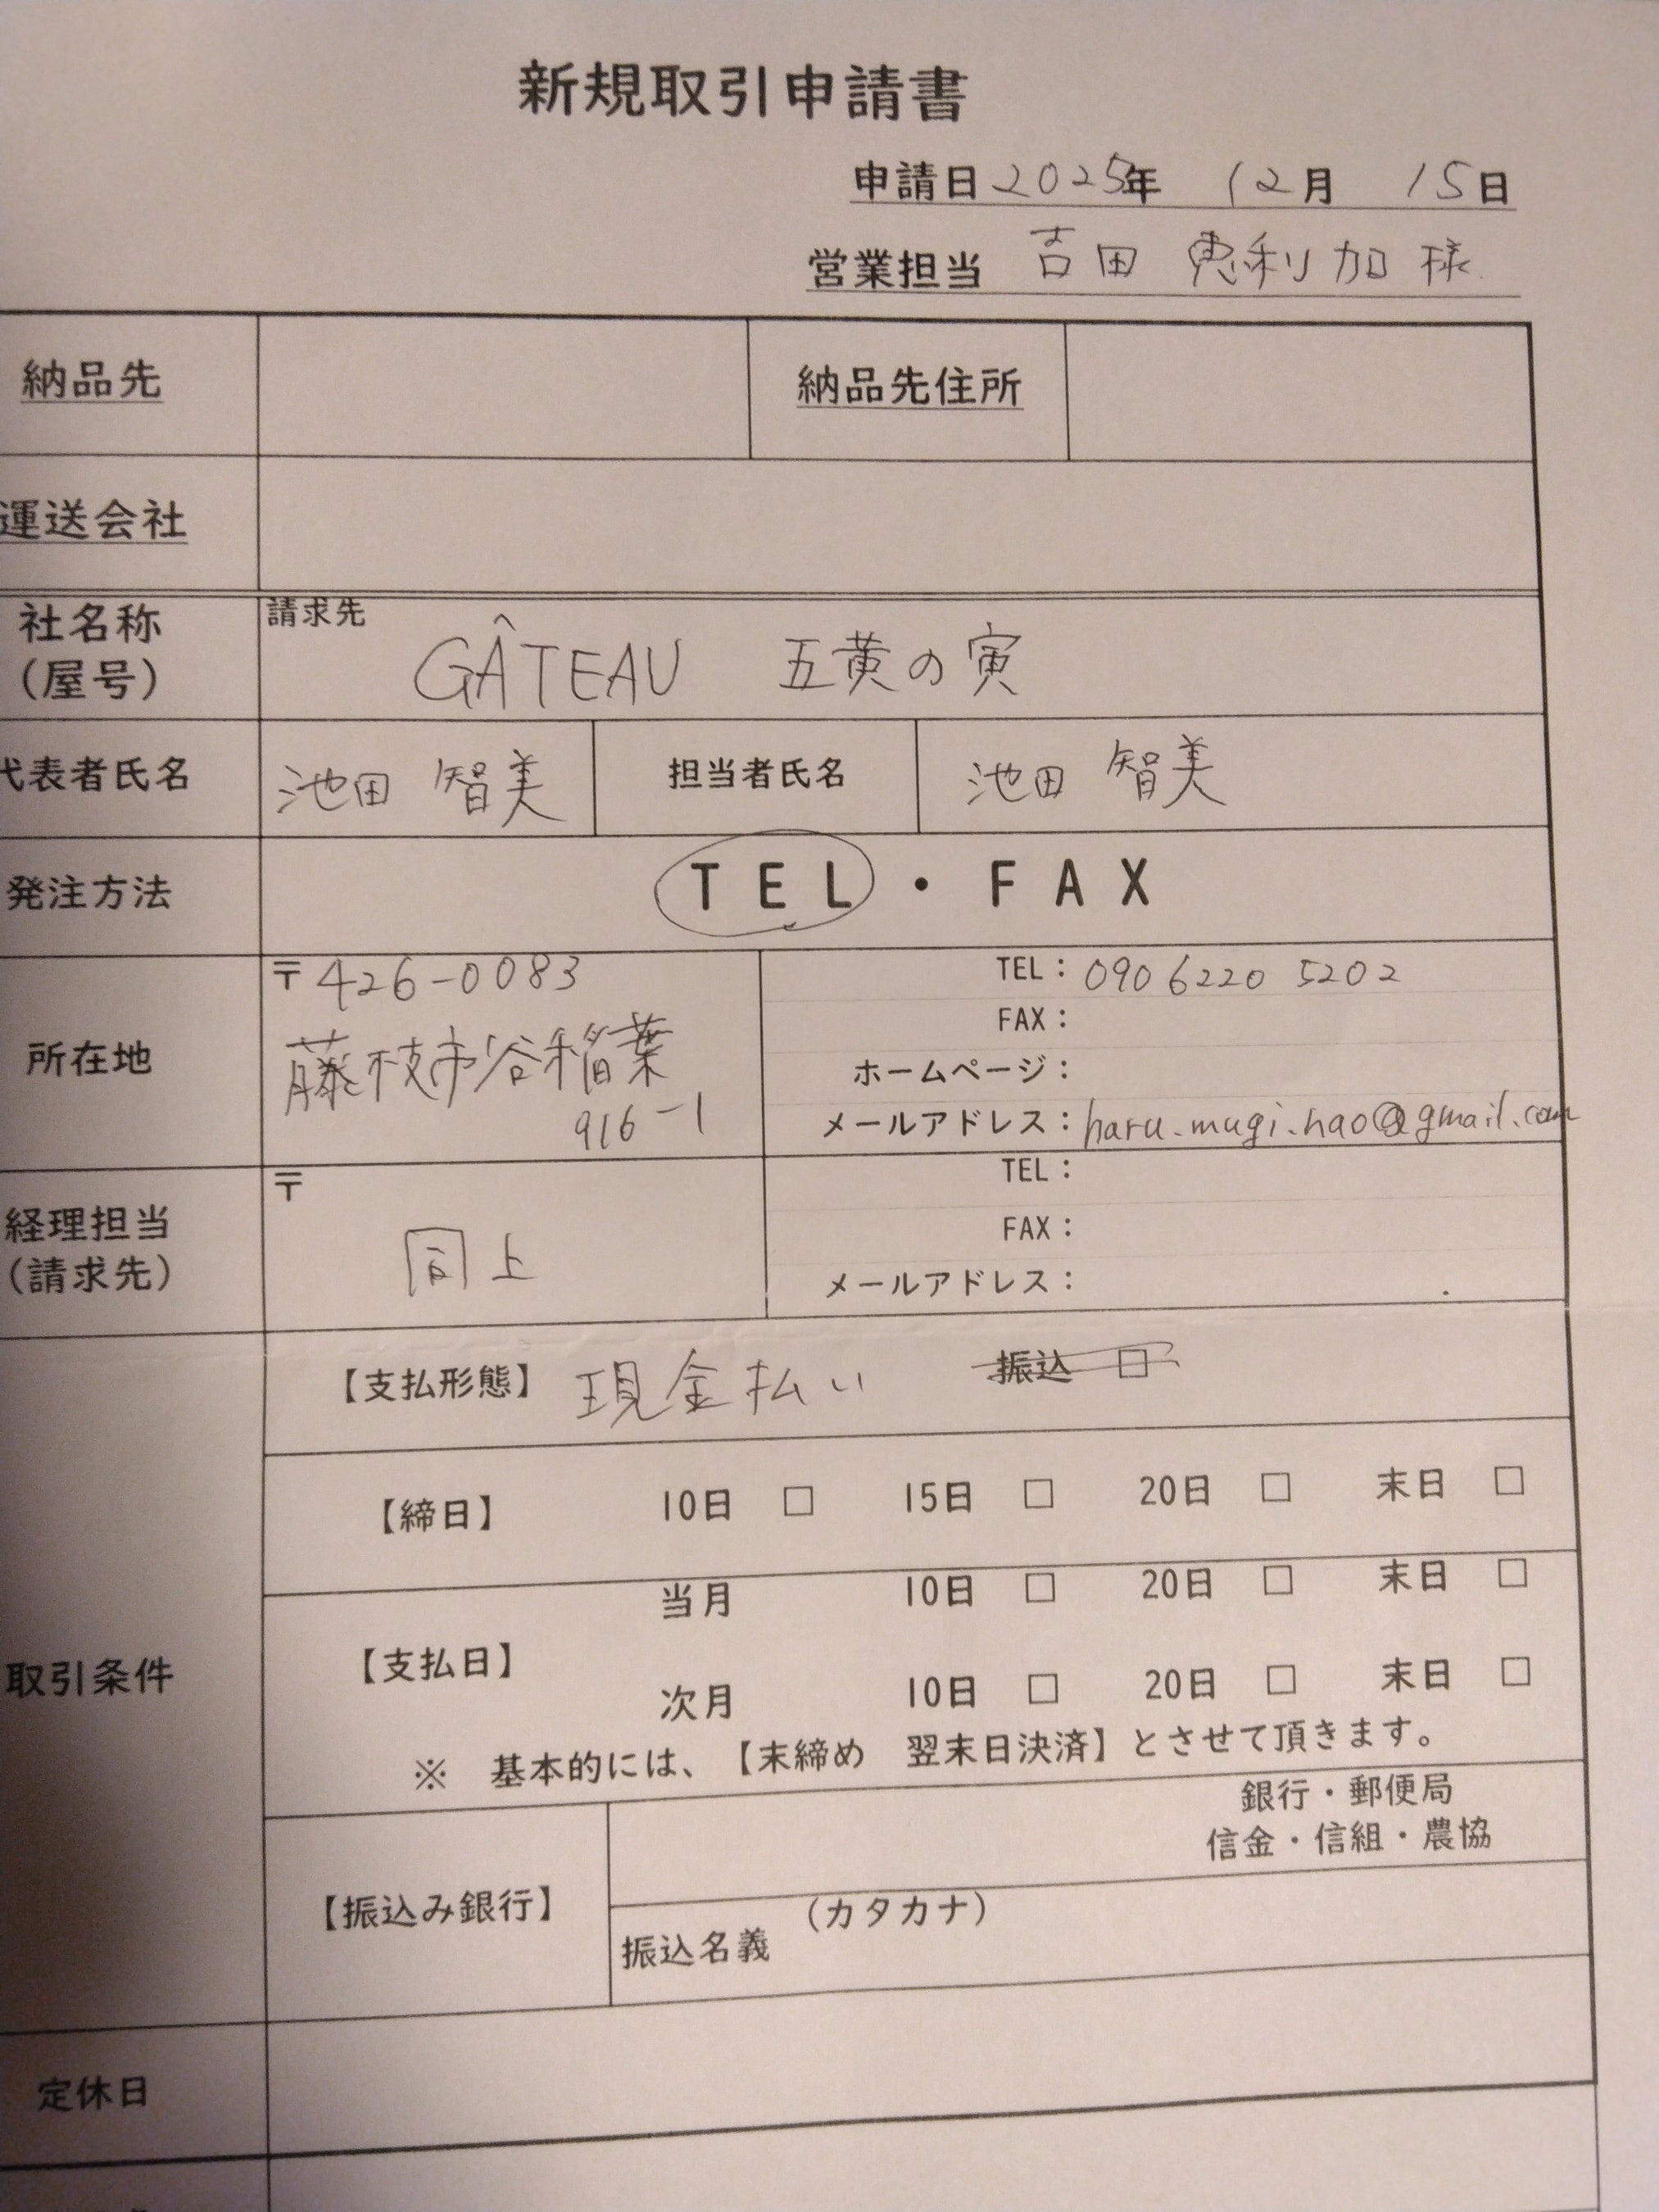 新規取引申請書
申請日 2025年 12月 15日
営業担当 吉田 恵利加 様
納品先 納品先住所
運送会社
社名称
(屋号)
請求先
GÂTEAU 五黄の寅
代表者氏名 池田 智美 担当者氏名 池田 智美
発注方法 TEL・FAX
所在地
〒426-0083
藤枝市谷稲葉
916-1
TEL：090 6220 5202
FAX：
ホームページ：
メールアドレス：haru.mugi.nao@gmail.com
経理担当
(請求先)
〒
同上
TEL：
FAX：
メールアドレス：
取引条件
【支払形態】 現金払い 振込 □
【締日】 10日 □ 15日 □ 20日 □ 末日 □
【支払日】
当月 10日 □ 20日 □ 末日 □
次月 10日 □ 20日 □ 末日 □
※ 基本的には、【末締め 翌末日決済】とさせて頂きます。
【振込み銀行】
銀行・郵便局
信金・信組・農協
(カタカナ)
振込名義
定休日